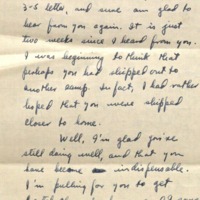 3-5 letter, and sure am glad to
hear from you again. It is just
two weeks since I heard from you.
I was beginning to think that
perhaps you had shipped out to
another camp. In fact, I had rather
hoped that you were shipped
closer to home.
Well, I'm glad you're
still doing well, and that you
have become indispensable.
I'm pulling for you to get